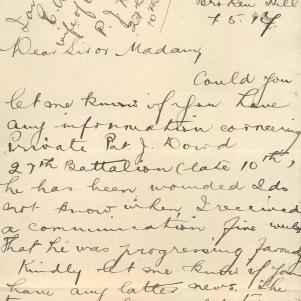 Broken Hill
7.5.17
Dear Sir or Madam,
Could you
let me know if you have
any information concerning
Private Pat. J. Dowd
27th Battalion (late 10th,
he has been wounded I do
not know when, I received
a communication five weeks
that he was progressing favou
Kindly let me know if you
have any latter news. The